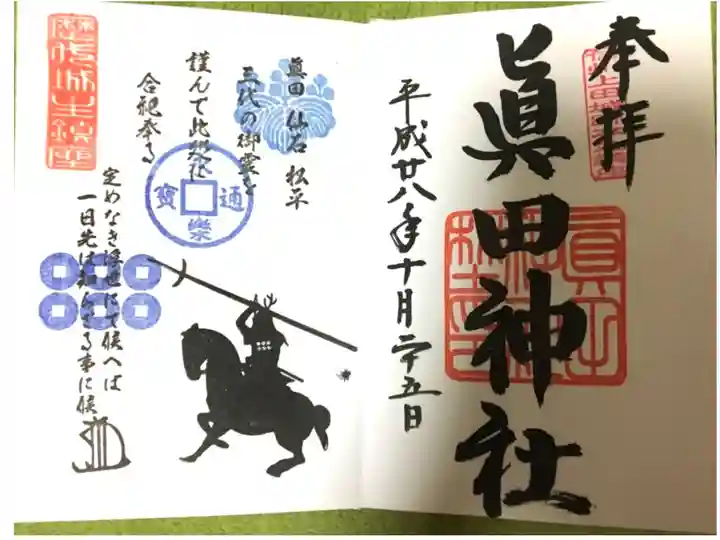 奉拝
眞田神社
平成廿八年十月二十五日
眞田 仙石 松平
三代の御霊を
謹んで此処に
合祀奉る
通
樂
寶
定めなき浮世にて候へば
一日先は知れざる事に候